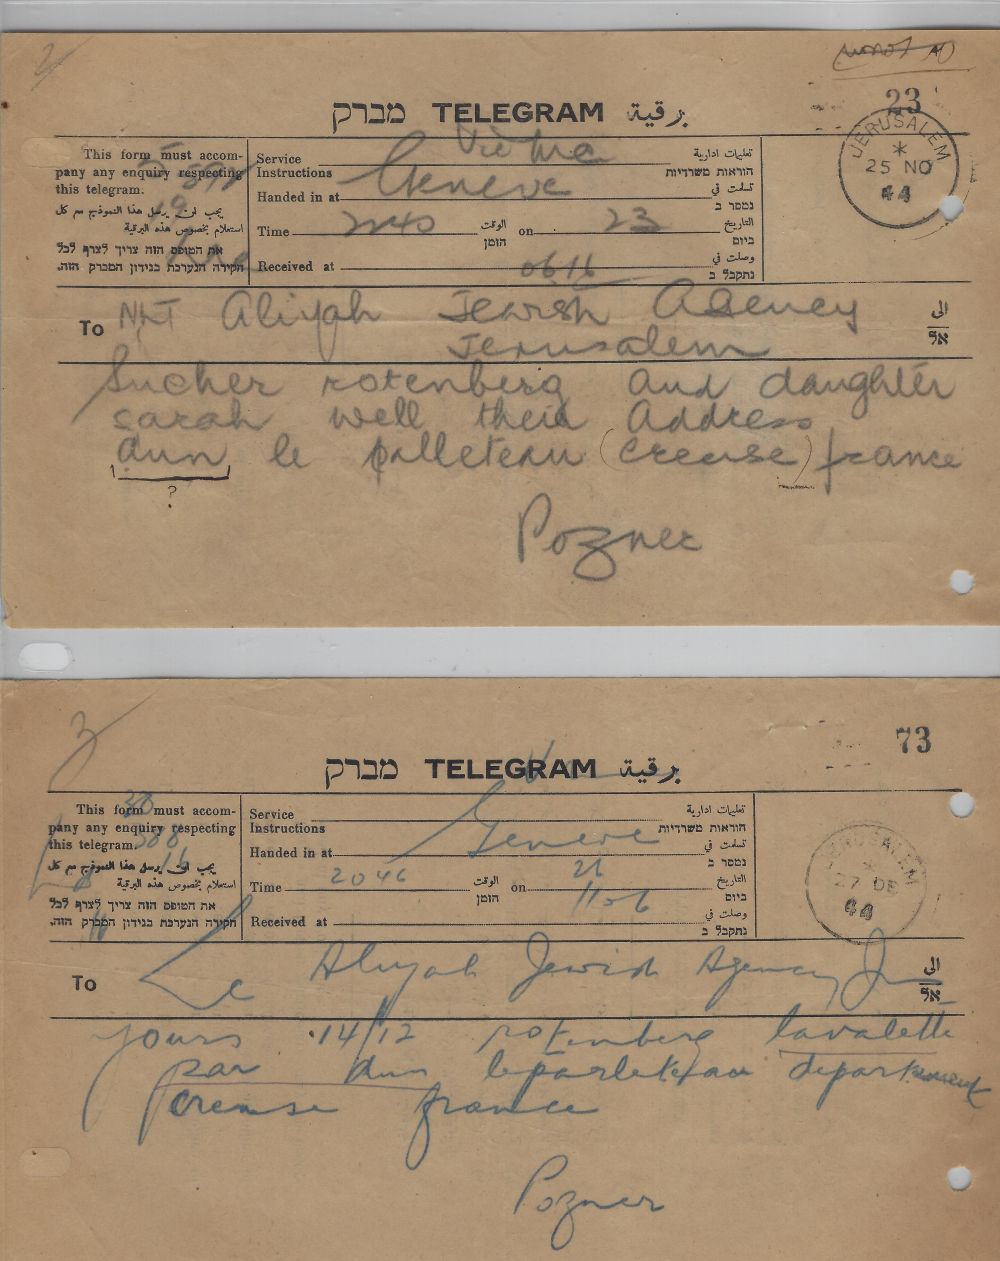 2
23
מברק TELEGRAM برقية
JERUSALEM
25 NO
44
This form must accom-
pany any enquiry respecting
this telegram.
يجب ان يرسل هذا النموذج مع كل
استعلام بخصوص هذه البرقية
את הטופס הזה צריך לצרף לכל
חקירה הנערכת בנידון המברק הזה.
Service تعليمات ادارية
Instructions הוראות משרדיות
Handed in at Geneve تسلمت في
נמסר ב
Time 2240 الوقت on 23 التاريخ
הזמן ביום
Received at 0616 وصلت في
נתקבל ב
To NLT Aliyah Jewish Agency الى
Jerusalem אל
Sucher rotenberg and daughter
sarah well their address
dun le palleteau (creuse) france
?
Pozner
3
73
מברק TELEGRAM برقية
JERUSALEM
27 DE
44
This form must accom-
pany any enquiry respecting
this telegram.
يجب ان يرسل هذا النموذج مع كل
استعلام بخصوص هذه البرقية
את הטופס הזה צריך לצרף לכל
חקירה הנערכת בנידון המברק הזה.
Service تعليمات ادارية
Instructions הוראות משרדיות
Handed in at Geneve تسلمت في
נמסר ב
Time 2046 الوقت on 26 التاريخ
הזמן 1106 ביום
Received at وصلت في
נתקבל ב
To Aliyah Jewish Agency J الى
אל
yours 14/12 rotenberg lavalette
par dun leparleteau departement
creuse france
Pozner